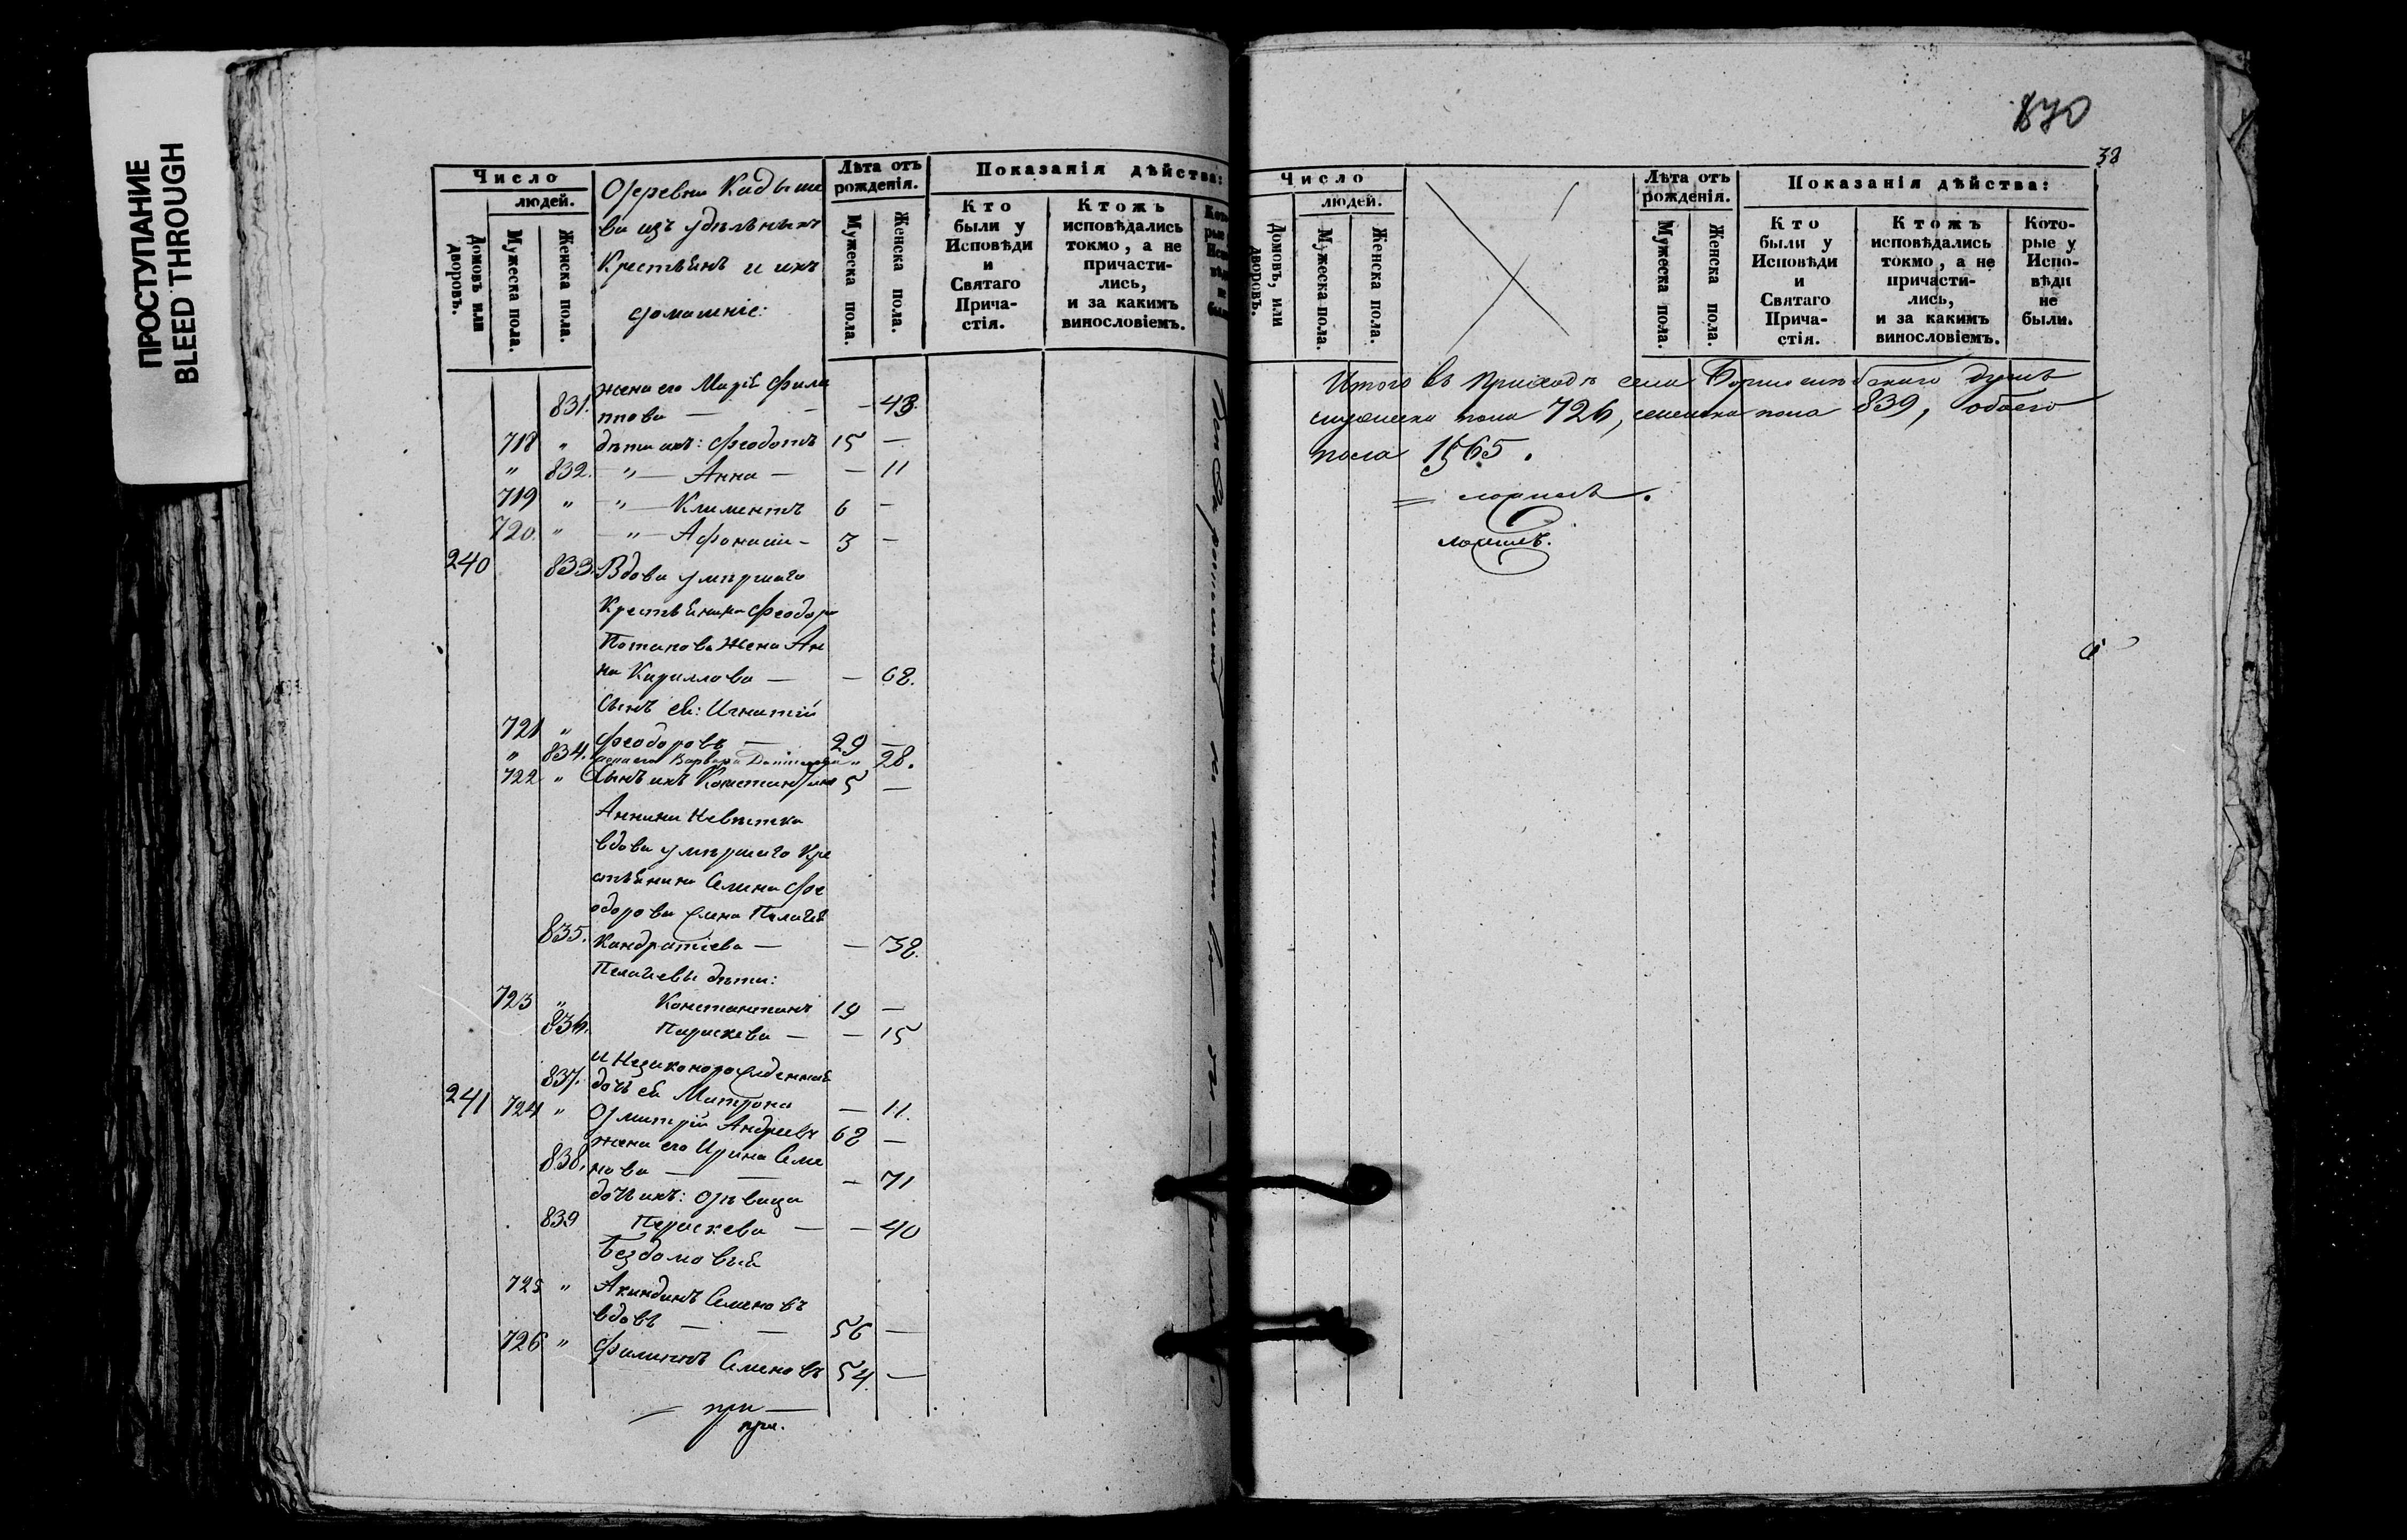 ПРОСТУПАНИЕ
BLEED THROUGH
Число
людей.
Домовъ или дворовъ.
Мужеска пола.
Женска пола.
Деревни Кадыше
ва изъ удѣльныхъ
Крестьянъ и ихъ
домашніе:
Лѣта отъ рожденія.
Мужеска пола.
Женска пола.
Показанія дѣйства:
Кто были у Исповѣди и Святаго Прича-стія.
Ктожъ исповѣдались токмо, а не причасти-лись, и за какимъ винословіемъ.
жена его Марія Фили
831. ппова — — — 43.
718 " дѣти ихъ: Феодотъ 15 —
" 832. — " — Анна — — 11
719 " — " — Климентъ 6 —
720. " — " — Афанасій — 3 —
240 833. Вдова умершаго
Крестьянина Феодора
Потапова жена Ан
на Кириллова — — 68.
Сынъ ея: Игнатій
721 " Феодоровъ — 29 —
" 834. жена его Варвара " 28.
722 " Сынъ ихъ Константинъ 5 —
Аннина невѣстка
вдова умершаго Кре
стьянина Семена Фе
одорова жена Пелагея
835. Кандратіева — — 38.
Пелагеевы дѣти:
723 " Константинъ 19 —
836. Параскева — — 15
и незаконорожденная
837. дочь ея Матрона — 11.
241 724 " Дмитрій Андреевъ 68 —
жена его Ирина Семе
838. нова — — — 71
дочь ихъ: дѣвица
839 Параскева — — 40
Бездомовый
725 " Акиндинъ Семеновъ
вдовъ — — 56 —
726 " Филиппъ Семеновъ 54. —
= при —
при.
870
38
Число
людей.
Домовъ, или дворовъ.
Мужеска пола.
Женска пола.
Лѣта отъ рожденія.
Мужеска пола.
Женска пола.
Показанія дѣйства:
Кто были у Исповѣди и Святаго Прича-стія.
Ктожъ исповѣдались токмо, а не причасти-лись, и за какимъ винословіемъ.
Кото-рые у Испо-вѣди не были.
Итого въ приходѣ села душъ
мужеска пола 726, женска пола 839, обоего
пола 1565.